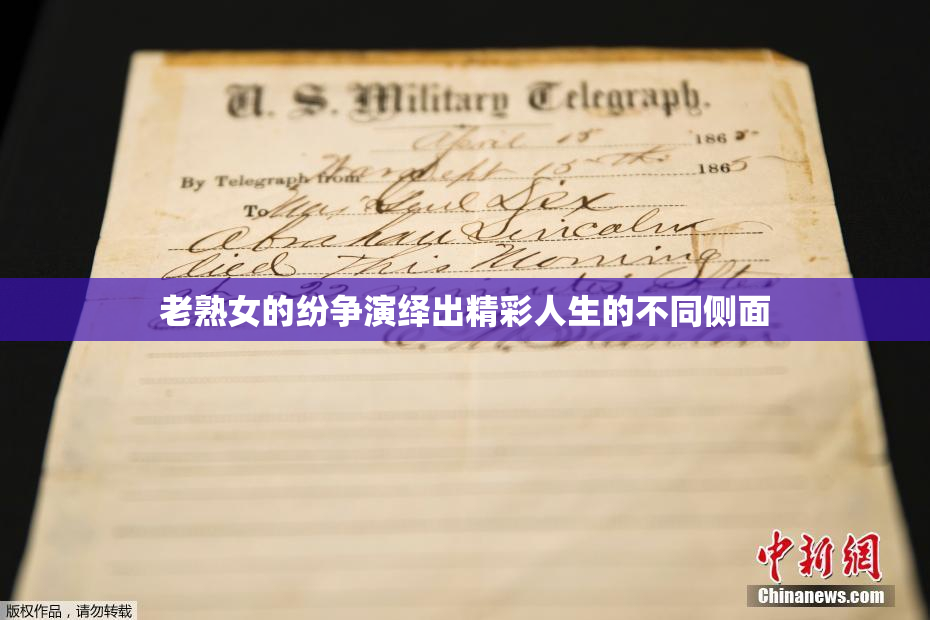 U. S. Military Telegraph.
April 15 1865
By Telegraph from War Dept 15th 1865
To Maj Genl Dix
Abraham Lincoln
died This Morning
at 22 minutes after
老熟女的纷争演绎出精彩人生的不同侧面
E. M. Stanton
中新網
Chinanews.com
版权作品,请勿转载